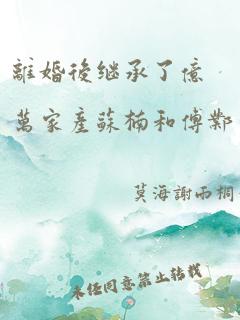 離婚後继承了億
萬家產蘇楠和傅鄴
莫海謝雨桐
未经同意禁止转载